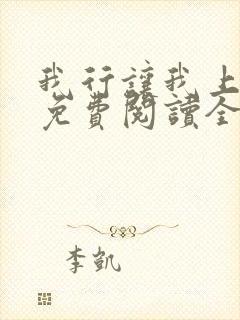 我行讓我上
免費閱讀全
李凱